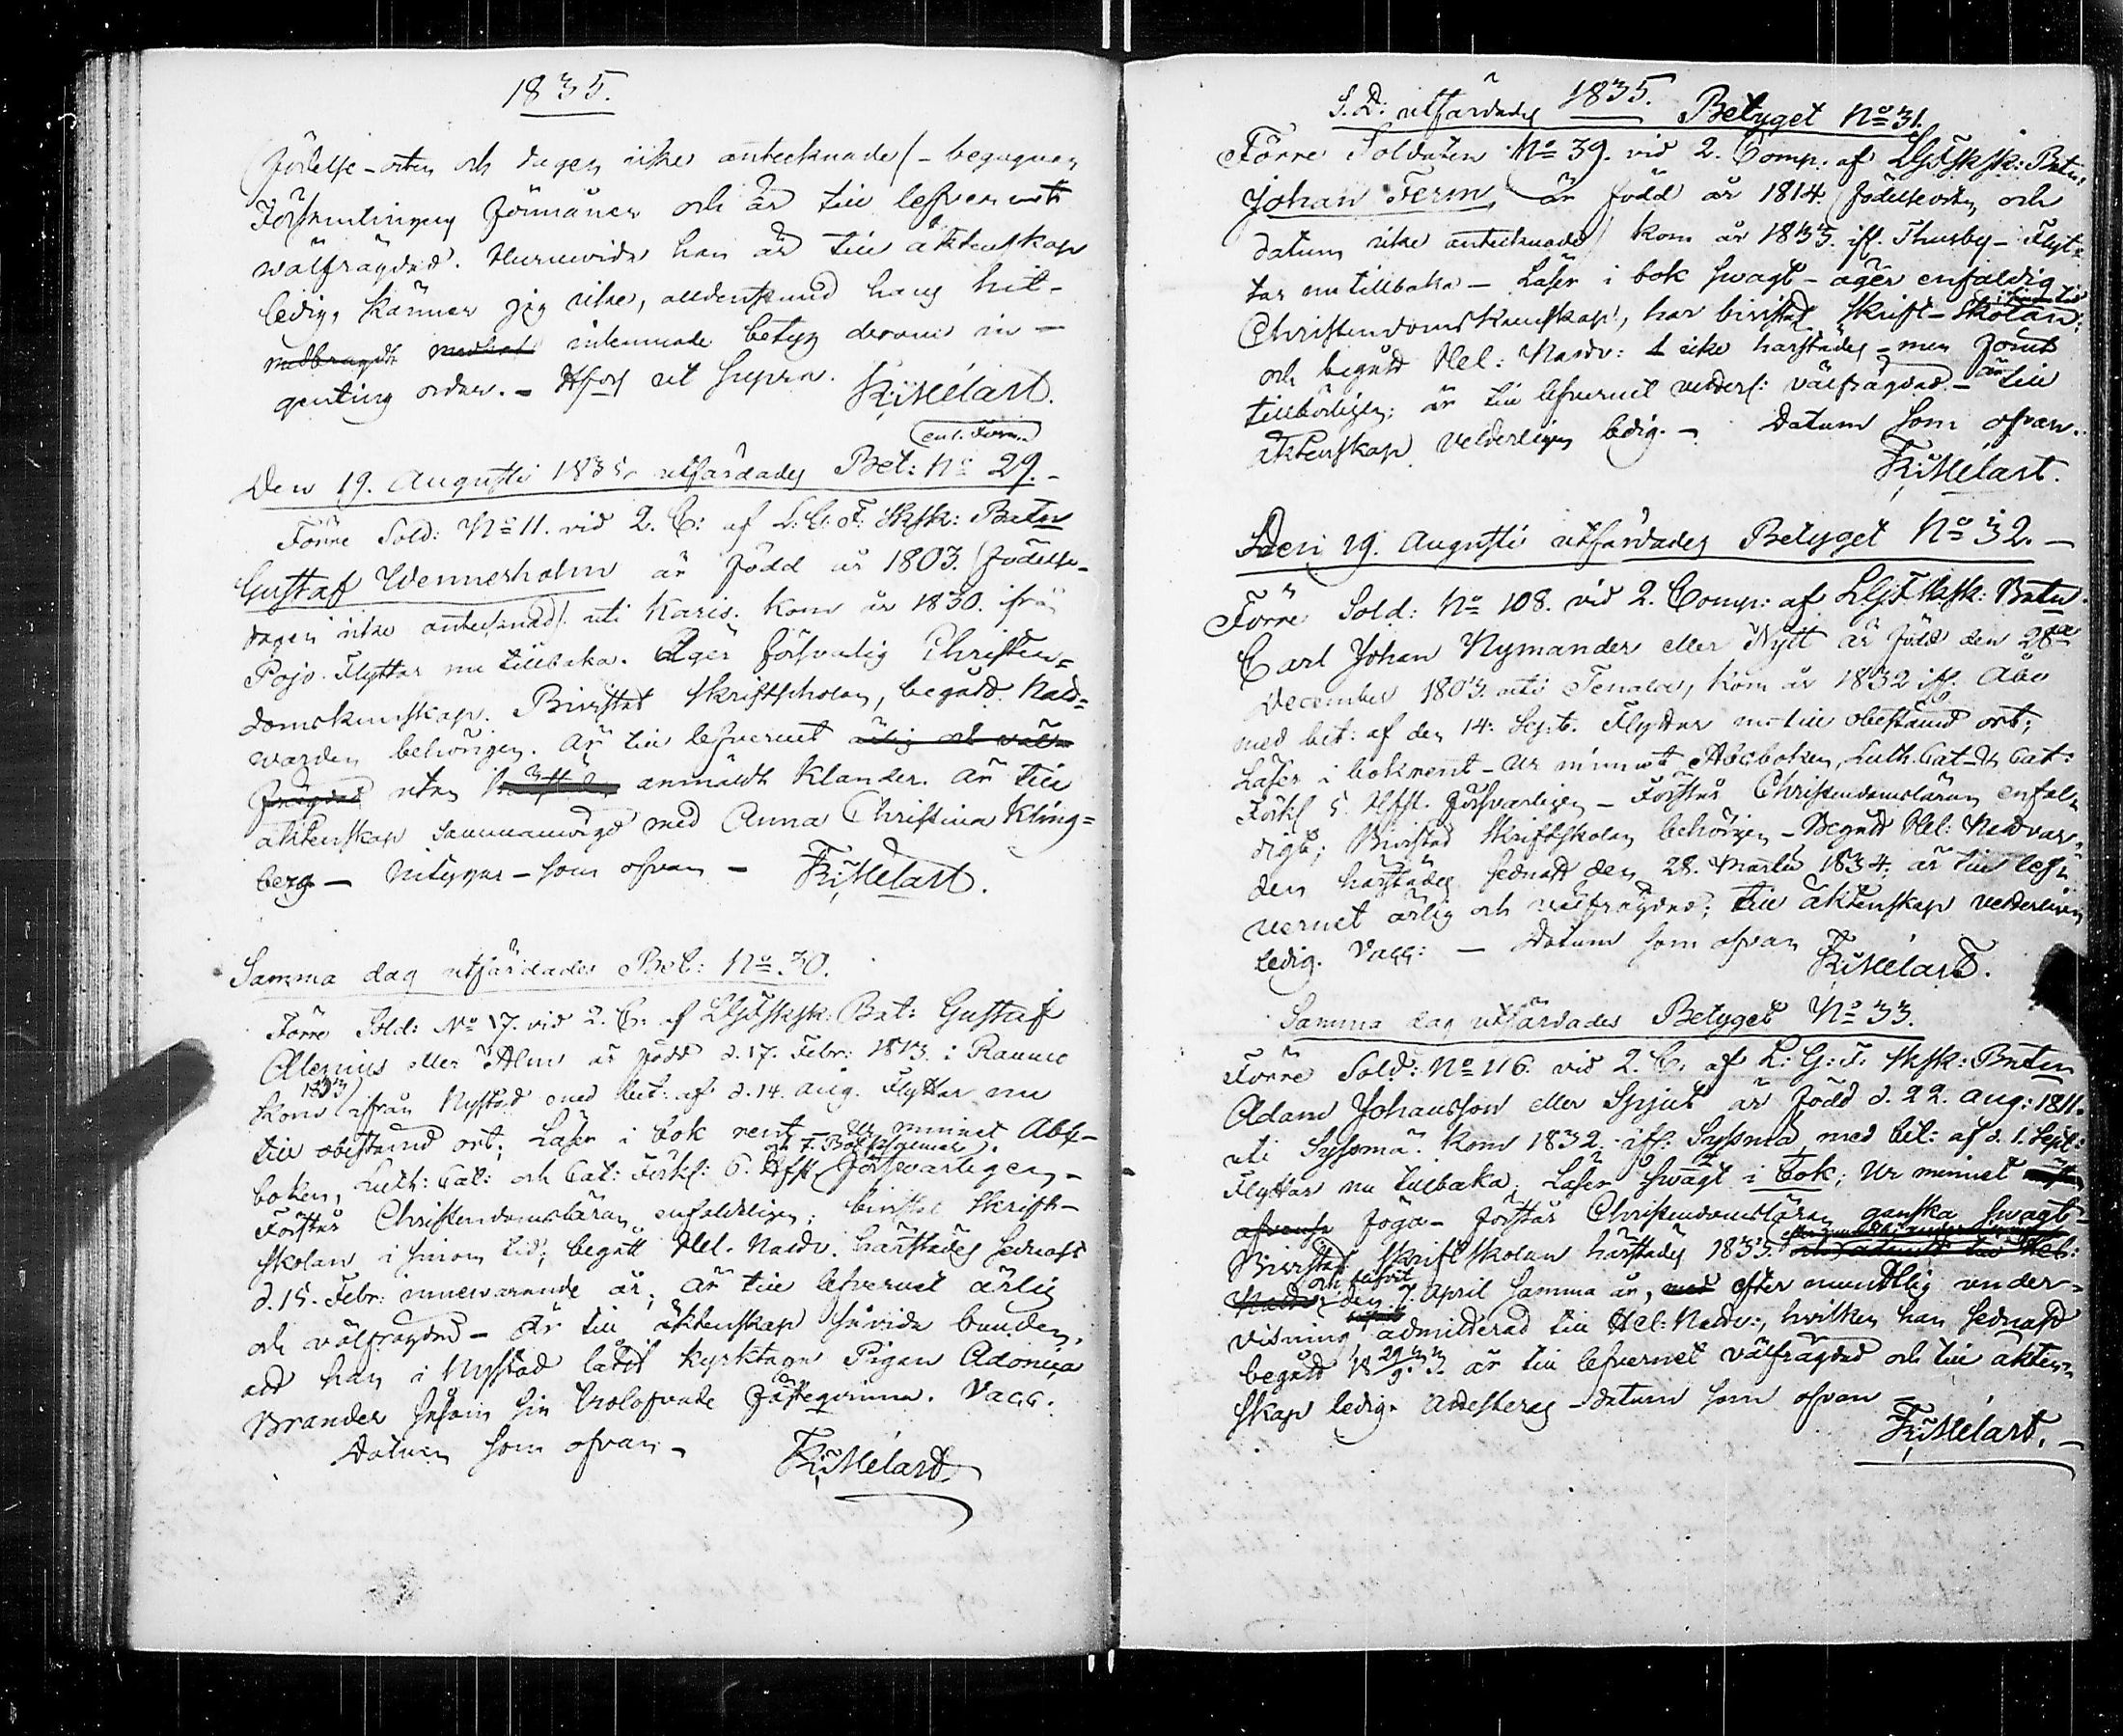 1835.
födelse-orten och dagen icke antecknade/ - begagnar
Församlingens förmåner och är till lefvernet
wälfrägdad. Huruvida han är till äktenskap
ledig, känner jag icke, alldenstund hans hit-
medbragdt medhaf intennade betyg derom in-
genting ordar. - H:fors ut supra. Fr: Melart.
enl. Form.
Den 19. Augusti 1835 utfärdades Bet: No 29. -
Förre Sold: No 11. vid 2. C: af L: G: F: Sksk: Batn
Gustaf Wennerholm är född år 1803. /födelse-
dagen icke antecknad/ uti Karis. Kom år 1830. ifrån
Pojo. Flyttar nu tillbaka. Äger försvarlig Christen=
domskunskap. Bivistat Skriftscholan, begådt Natt=
varden behörigen. Är till lefvernet ärlig och väl=
frägdad utan anmäldt klander. Är till
äktenskap sammanvigd med Anna Christina Kling=
berg - Vitsordas - som ofvan - Fr: Melart.
Samma dag utfärdades Bet: No. 30.
Förre Sold: No 17. vid 2. C: af LGFSksk: Bat: Gustaf
Alenius eller Alm är född d. 17. Febr: 1813. i Raumo
1833
Kom ifrån Nystad med bet: af d. 14. Aug. Flyttar nu
till obestämd ort; Läser i bok rent - Ur minnet Abc-
och 7. Botpsalmerne
boken, Luth: Cat: och Cat: Förkl: 6. Hfst försvarligen -
Förstår Christendomsläran enfaldeligen; bivistat Skrift-
skolan i sinom tid; begått Hel. Nardv. härstädes sednast
d. 15. Febr: innewarande år; är till lefvernet ärlig
och välfrägdad - Är till äktenskap såvida bunden,
att han i Nystad låtit kyrktaga Pigan Adonica
Brander såsom sin trolofvade fästeqvinna. Vacc.
Datum som ofvan - Fr: Melart
1835.
S. D: utfärdades Betyget No 31.
Förre Soldaten No 39. vid 2. Comp: af LGFSksk: Batn:
Johan Ferm, är född år 1814. /födelseorten och
datum icke antecknade/ kom år 1833. ifr. Thusby - Flyt=
tar nu tillbaka - Läser i bok swagt - äger enfaldig
i sinom tid
Christendomskunskap, har bivistat Skrift-Skolan:
och begådt Hel: Nardv: icke härstädes - men förut
är
tillbörligen; är till lefvernet vetterl: välfrägdad - till
äktenskap vetterligen ledig. - Datum som ofvan.
Fr: Melart.
Den 19. Augusti utfärdades Betyget No 32. -
Förre Sold: No 108. vid 2. Comp: af LGFSksk: Batn
Carl Johan Nymander eller Nytt är född den 28de
December 1803. uti Tenala, kom år 1832 ifr. Åbo
med bet: af den 14: Sept. Flyttar nu till obestämd ort;
Läser i bok rent - Ur minnet Abcboken, Luth. Cat - och Cat:
Förkl 5. Hfst. försvarligen - Förstår Christendomsläran enfal=
digt; Bivistad Skriftskolan behörigen - Begådt Hel: Nadvar=
den härstädes sednast den 28. Martii 1834; är till lef=
vernet ärlig och välfrägdad; till äktenskap vetterligen
ledig. Vacc: - Datum som ofvan Fr: Melart.
Samma dag utfärdades Betyget No 33.
Förre Sold: No 116. vid 2. C. af L: G: F. Sksk: Batn
Adam Johansson eller Spjut är född d. 22. Aug: 1811.
uti Syssmä. Kom 1832. ifr: Syssmä med bet: af d. 1. Sept:
Flyttar nu tillbaka. Läser Swagt i bok; Ur minnet
föga - förstår Christendomsläran ganska swagt -
Bivistat Skriftskolan härstädes 1833. och admitt till Hel:
och blifvit
Nadv: den 7. April samma år, med efter mundtlig under=
visning admitterad till Hel: Nardv:, hvilken han sednast
begådt 18 29/9. 33. är till lefvernet välfrägdad och till äkten=
skap ledig. Attesteras - datum som ofvan
Fr: Melart. -